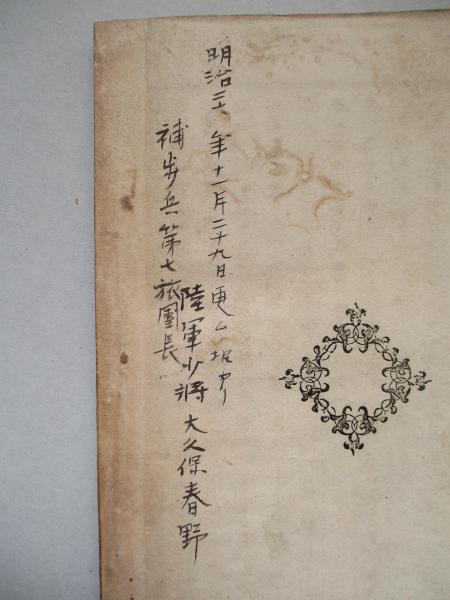 明治三十 年十一月二十九日
陸軍少將 大久保春野
補步兵第七旅團長